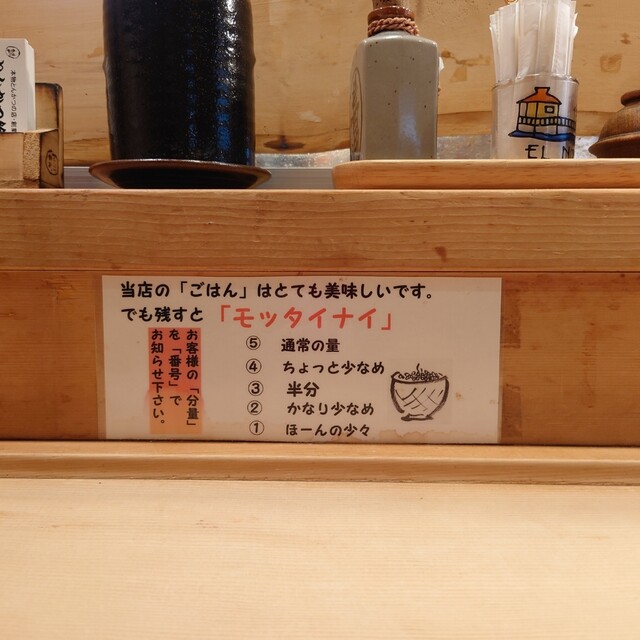 当店の「ごはん」はとても美味しいです。
でも残すと「モッタイナイ」
お客様の「分量」
を「番号」で
お知らせ下さい。
⑤ 通常の量
④ ちょっと少なめ
③ 半分
② かなり少なめ
① ほーんの少々
EL